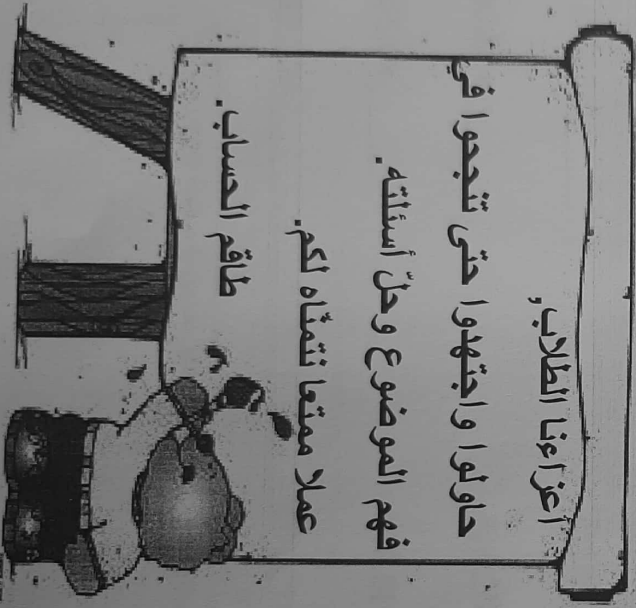 أعزاءنا الطلاب,
حاولوا واجتهدوا حتى تنجحوا في
فهم الموضوع وحلّ أسئلته.
عملا ممتعا نتمنّاه لكم.
طاقم الحساب.